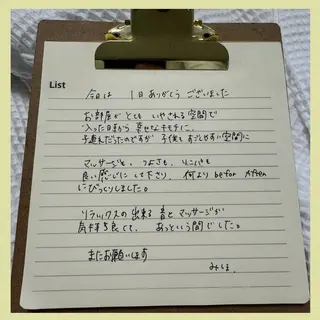 List
今日は 1日ありがとうございました
お部屋がとてもいやされる空間で
入った日から 幸せなキモチに。
子連れだったのですが 子供もすごしやすい空間に
マッサージも、つよさも、リズムも
良い感じにして下さり、何より befor after
にびっくりしました。
リラックスの出来る音とマッサージが
気持ち良くて、あっという間でした。
またお願いします